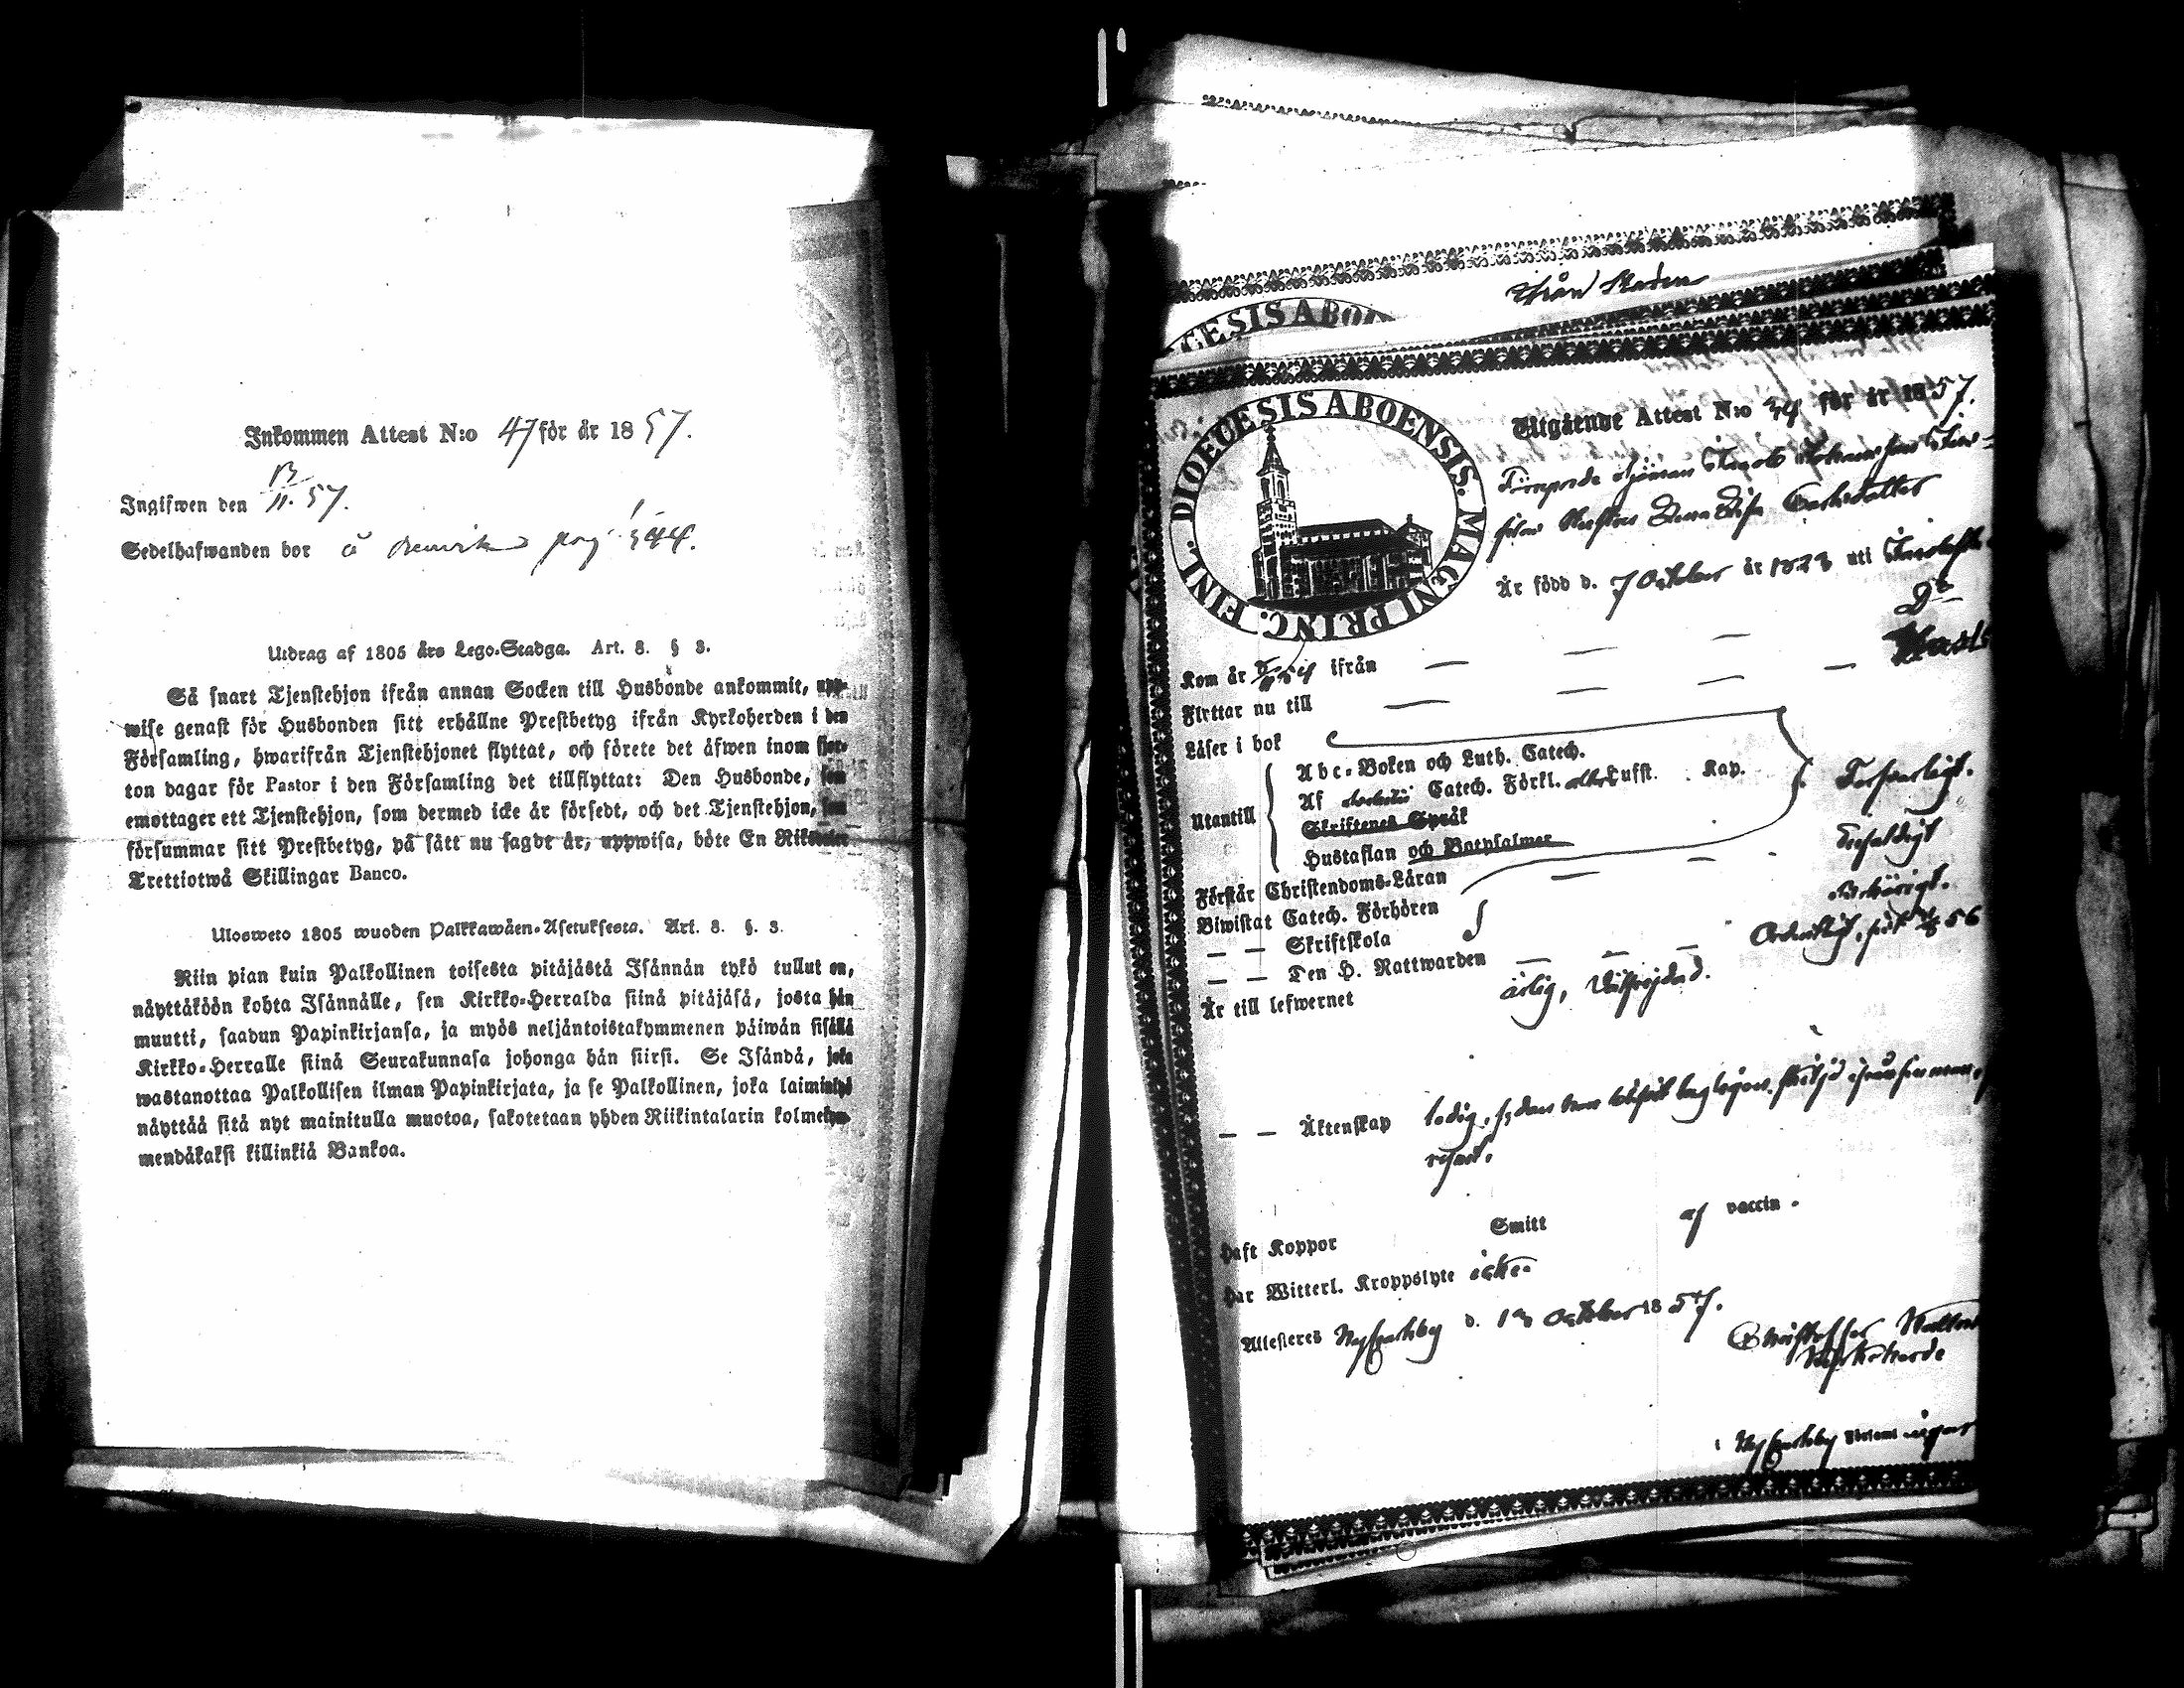 Inkommen Attest N:o 47 för år 1857.
Ingifwen den 13/11. 57.
Sedelhafwanden bor å pag. 344.
Utdrag af 1805 års Lego-Stadga. Art. 8. § 3.
Så snart Tjenstehjon ifrån annan Socken till Husbonde ankommit, upp-
wise genast för Husbonden sitt erhållne Prestbetyg ifrån Kyrkoherden i den
Församling, hwarifrån Tjenstehjonet flyttat, och förete det äfwen inom fjor-
ton dagar för Pastor i den Församling det tillflyttat: Den Husbonde, som
emottager ett Tjenstehjon, som dermed icke är försedt, och det Tjenstehjon, som
försummar sitt Prestbetyg, på sätt nu sagdt är, uppwisa, böte En Riksdaler
Trettiotwå Skillingar Banco.
Ulosweto 1805 wuoden Palkkawäen-Asetuksesta. Art. 8. §. 3.
Niin pian kuin Palkollinen toisesta pitäjästä Isännän tykö tullut on,
näyttäköön kohta Isännälle, sen Kirkko-Herralda siinä pitäjäsä, josta hän
muutti, saadun Papinkirjansa, ja myös neljäntoistakymmenen päiwän sisällä
Kirkko-Herralle siinä Seurakunnasa johonga hän siirsi. Se Isändä, joka
wastanottaa Palkollisen ilman Papinkirjata, ja se Palkollinen, joka laiminlyö
näyttää sitä nyt mainitulla muotoa, sakotetaan yhden Riikintalarin kolmekym-
mendäkaksi killinkiä Bankoa.
ifrån Staden
DIOECESIS ABOENSIS
DIOECESIS ABOENSIS. MAGNI PRINC. FINL.
Utgående Attest N:o 34 för år 1857.
Anna Lisa
Är född d. 7 October år 1823 uti
Do
Kom år ifrån
Flyttar nu till
Läser i bok
Abc-Boken och Luth. Catech.
Utantill
Af Catech. Förkl. Lufft. Kap.
Skriftenes Språk
Hustaflan och Botpsalmer
Försvarligt.
Förstår Christendoms-Läran
Enfaldigt
Biwistat Catech. Förhören
— — Skriftskola
Behörigt.
— — Den H. Nattwarden
56
Är till lefwernet ärlig, välfrejdad.
— — Äktenskap ledig,
Haft Koppor Smitt af vaccin.
Har Witterl. Kroppslyte icke.
Attesteras Nykarleby d. October 1857.
Christoffer
Kyrkoherde
i Nykarleby Församl.